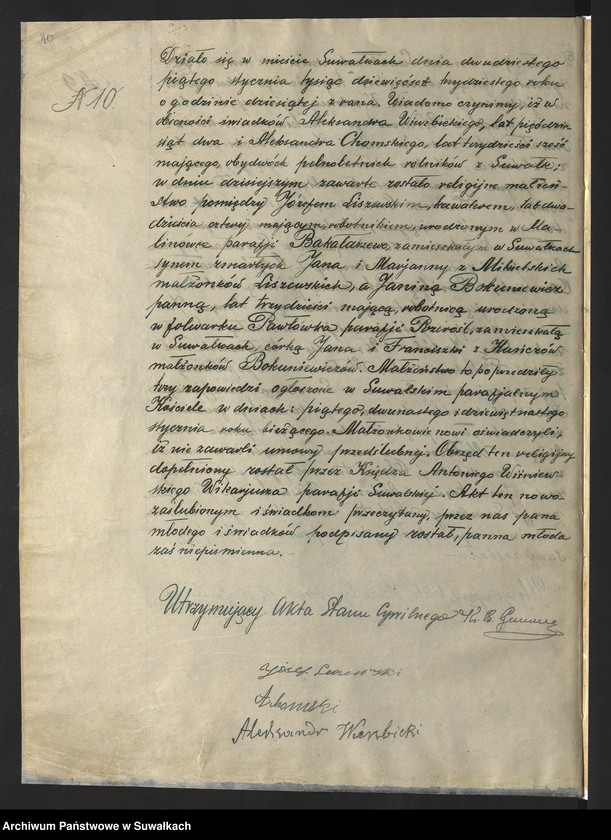 40
N 10.
Działo się w mieście Suwałkach dnia dwudziestego
piątego stycznia tysiąc dziewięćset trzydziestego roku
o godzinie dziesiątej z rana. Wiadomo czynimy, iż w
obecności świadków Aleksandra Wierzbickiego, lat pięćdzie
siąt dwa i Aleksandra Chomskiego, lat trzydzieści sześć
mającego, obydwóch pełnoletnich rolników z Suwałk;
w dniu dzisiejszym zawarte zostało religijne małżeń-
stwo pomiędzy Józefem Liszewskim, kawalerem, lat dwa-
dzieścia cztery mającym, robotnikiem, urodzonym w Ma-
linówce parafji Bakałarzewo, zamieszkałym w Suwałkach
synem zmarłych Jana i Marjanny z
małżonków Liszewskich, a Janiną Bokuniewicz
panną, lat trzydzieści mającą, robotnicą urodzoną
w folwarku Pawłówka parafji Przerośl, zamieszkałą
w Suwałkach, córką Jana i Franciszki z
małżonków Bokuniewiczów. Małżeństwo to poprzedziły
trzy zapowiedzi ogłoszone w Suwalskim parafjalnym
Kościele w dniach: piątego, dwunastego i dziewiętnastego
stycznia roku bieżącego. Małżonkowie nowi oświadczyli,
iż nie zawarli umowy przedślubnej. Obrzęd ten religijny
dopełniony został przez Księdza Antoniego Wiśniew-
skiego Wikarjusza parafji Suwalskiej. Akt ten nowo-
zaślubionym i świadkom przeczytany, przez nas pana
młodego i świadków podpisany został, panna młoda
zaś niepiśmienna.
Utrzymujący Akta Stanu Cywilnego Ks. B.
Józef
A. Chomski
Aleksandr Wierzbicki
Archiwum Państwowe w Suwałkach